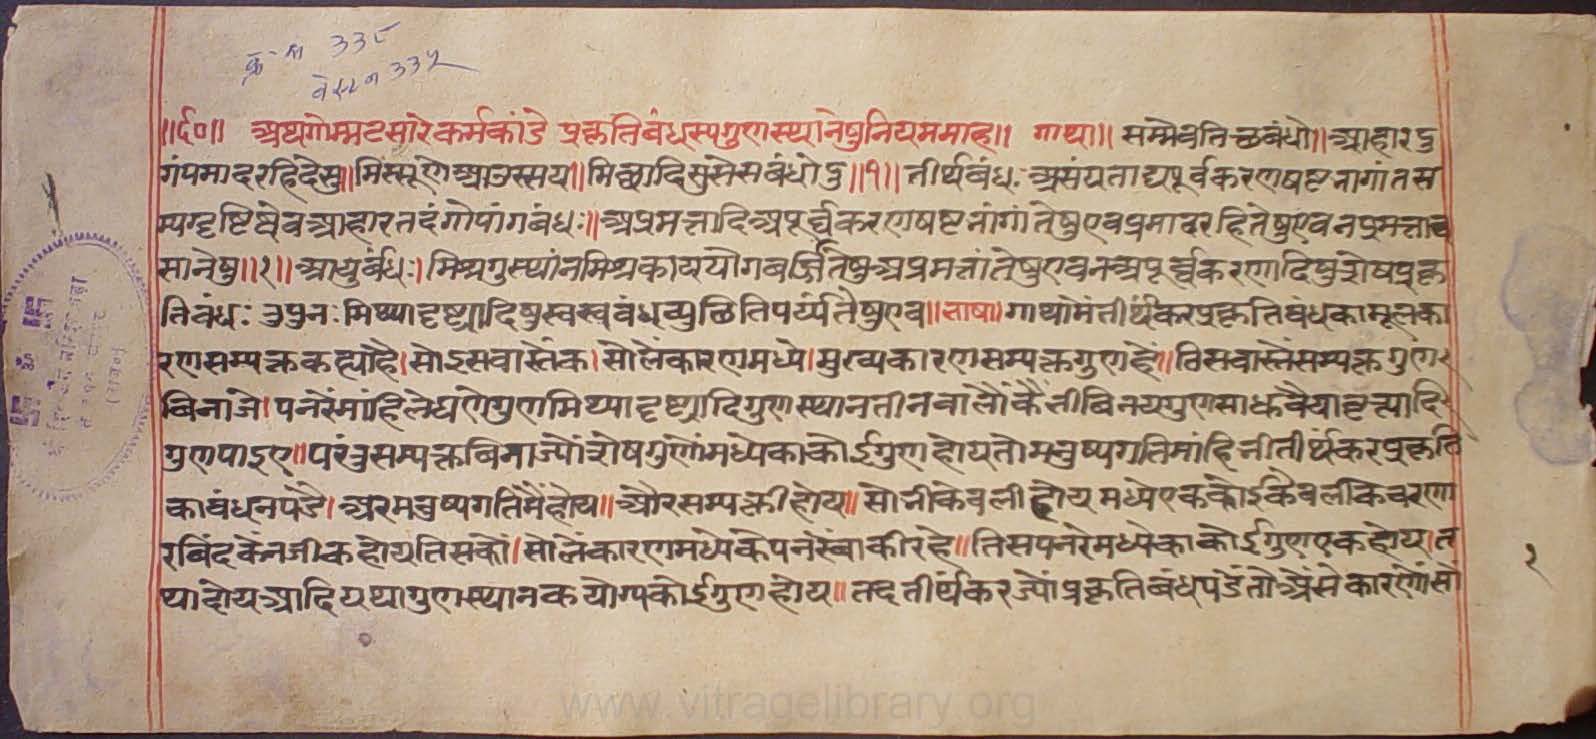 क्र. सं ३३८
वेस्टन ३३५
॥र्द०॥ अथगोम्मटसारेकर्मकांडे प्रकृतिबंधस्यगुणस्थानेषुनियममाह॥ गाथा॥ सम्मेवतिच्छबंधो॥आहारदु
गंपमादरहिदेसु॥मिस्सूणेआउस्सय॥मिच्छादिसुसेसबंधोदु॥१॥तीर्थबंधः असंयताद्यपूर्वकरणषष्टनागांतस
म्यग्दृष्टिष्वेवआहारतदंगोपांगबंधः॥अप्रमत्तादिअपूर्व्वकरणषष्टनांगांतेषुएवप्रमादरहितेषुएवनप्रमत्ताव
सानेषु॥२॥आयुर्बंधः।मिश्रगुस्थांनमिश्रकाययोगबर्ज्जितेषुअप्रमत्तांतेषुएवनअपूर्व्वकरणादिषुशेषप्रकृ
तिबंधः उपुनः मिथ्यादृष्ट्यादिषुस्वस्वबंधव्युछितिपर्य्यंतेषुएव॥भाषा॥गाथामेंतीर्थंकरप्रकृतिबंधकामूलका
रणसम्यक्तकह्याहै।सोइसवास्तैंक।सोलैंकारणमध्ये।मुख्यकारणसम्यक्तगुणहें॥तिसवास्तैंसम्यक्तगुण
बिनाजे।पनरेंमांहिलेघणेगुणमिथ्यादृष्ट्यादिगुणस्थानतीनवालौंकैंभीबिनयगुणसाधवैयावृत्यादि
गुणपाइए॥परंतुसम्यक्तबिनाज्योंशेषगुणोंमध्येकाकोईगुणहोयतोमनुष्यगतिमांहिभीतीर्थंकरप्रकृति
काबंधनपडै।अरमनुष्यगतिमैंहोय॥औरसम्यक्तीहोय॥सोभीकेवलीहोयमध्येएककोईकेवलीकेचरणा
रबिंदकेनजीकहोयतिसकों।सोलेंकारणमध्येकेपनरेंबाकीरहे॥तिसपनरेमध्येकाकोईगुणएकहोय।त
थाहोयआदियथागुणस्थानकयोग्यकोईगुणहोय॥तदतीर्थंकरज्योंप्रकृतिबंधपडेंतोअैंसेकारणोंसों
१
www.vitragelibrary.org